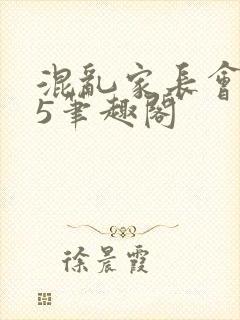 混亂家長會
5筆趣閣
徐晨霞